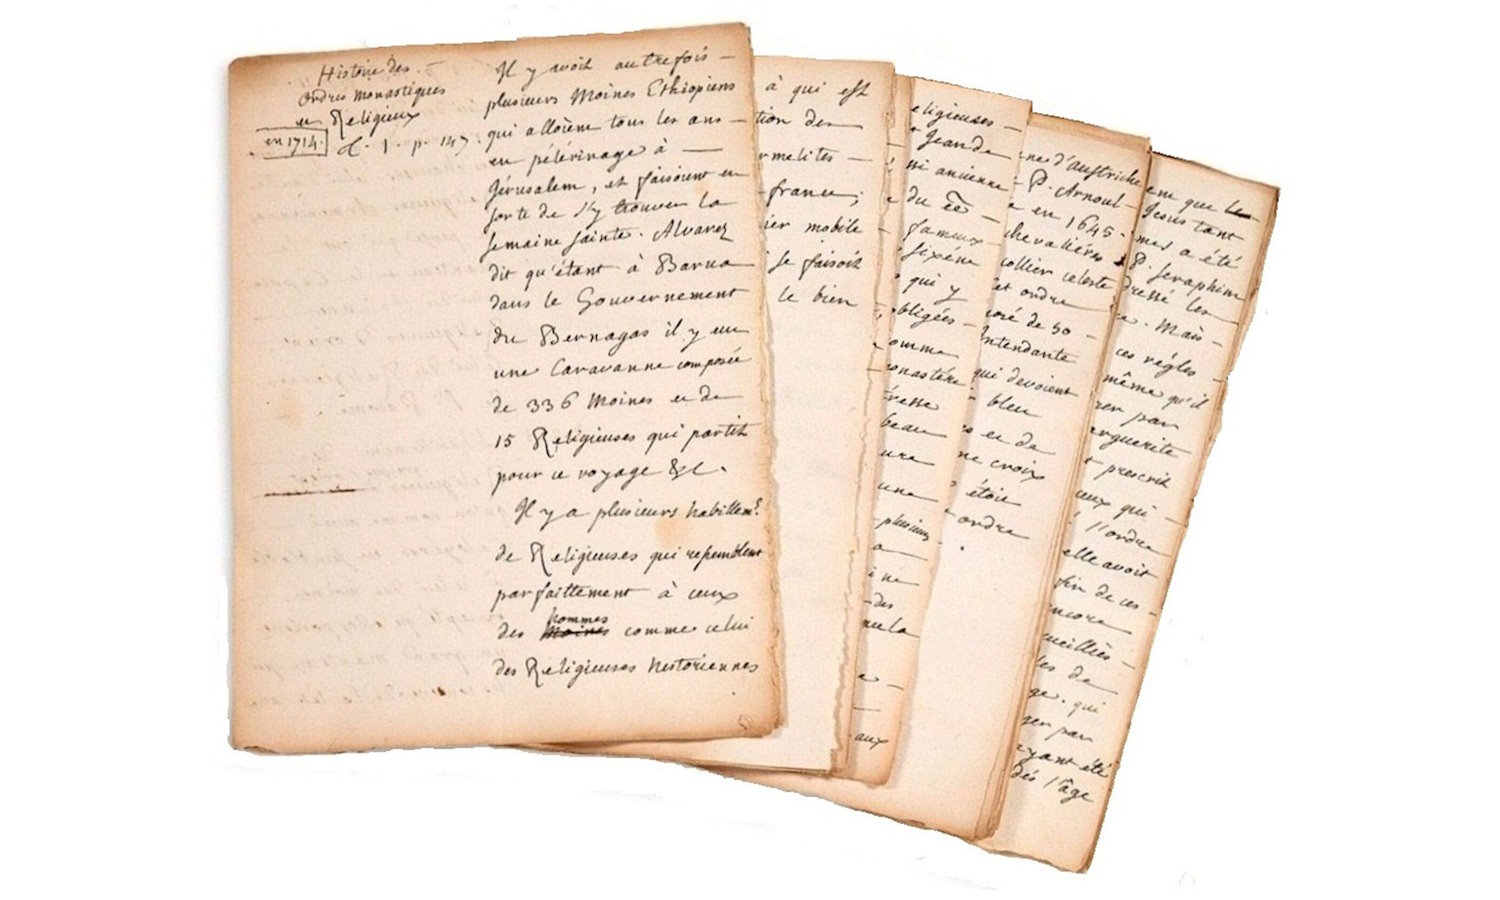 Histoire des
ordres monastiques
et Religieux
en 1714. t. 1. p. 147.
Il y avoit autrefois —
plusieurs Moines Ethiopiens
qui alloient tous les ans —
en pélérinage à —
Jérusalem, et faisoient en
sorte de s'y trouver la
semaine sainte. Alvarez
dit qu'étant à Barua
dans le Gouvernement
du Bernagas il y eut
une Caravanne composée
de 336 Moines et de
15 Religieuses qui partit
pour ce voyage &c.
Il y a plusieurs habillem.s
de Religieuses qui ressemblent
parfaittement à ceux
hommes
des Moines comme celui
des Religieuses nestoriennes
à qui est
tion des
rmelites —
france;
ier mobile
se faisoit
le bien
eligieuses —
Jean de
si ancienne
du
fameux
sixéne
qui y
bligées —
omme
onastére
tresse
beau
ure
une
plusieurs
a —
ne
des
que la
e —
aux
ne d'austriche
P. Arnoul
e en 1645.
chevaliéres
collier celeste
et ordre
oré de 50 —
Intendante
qui devoient
bleu
s et de
ne croix
étoit
ordre
ent que les
Jesus tant
mes a été
P. Seraphim
dressé les
e. Mais —
ces régles —
même qu'il
rer par
arguerite
t prescrit
eux qui —
l'ordre
elle avoit
fin de ces —
encore
cueillies —
les de
ge. qui
ger par
ayant été
dés l'âge